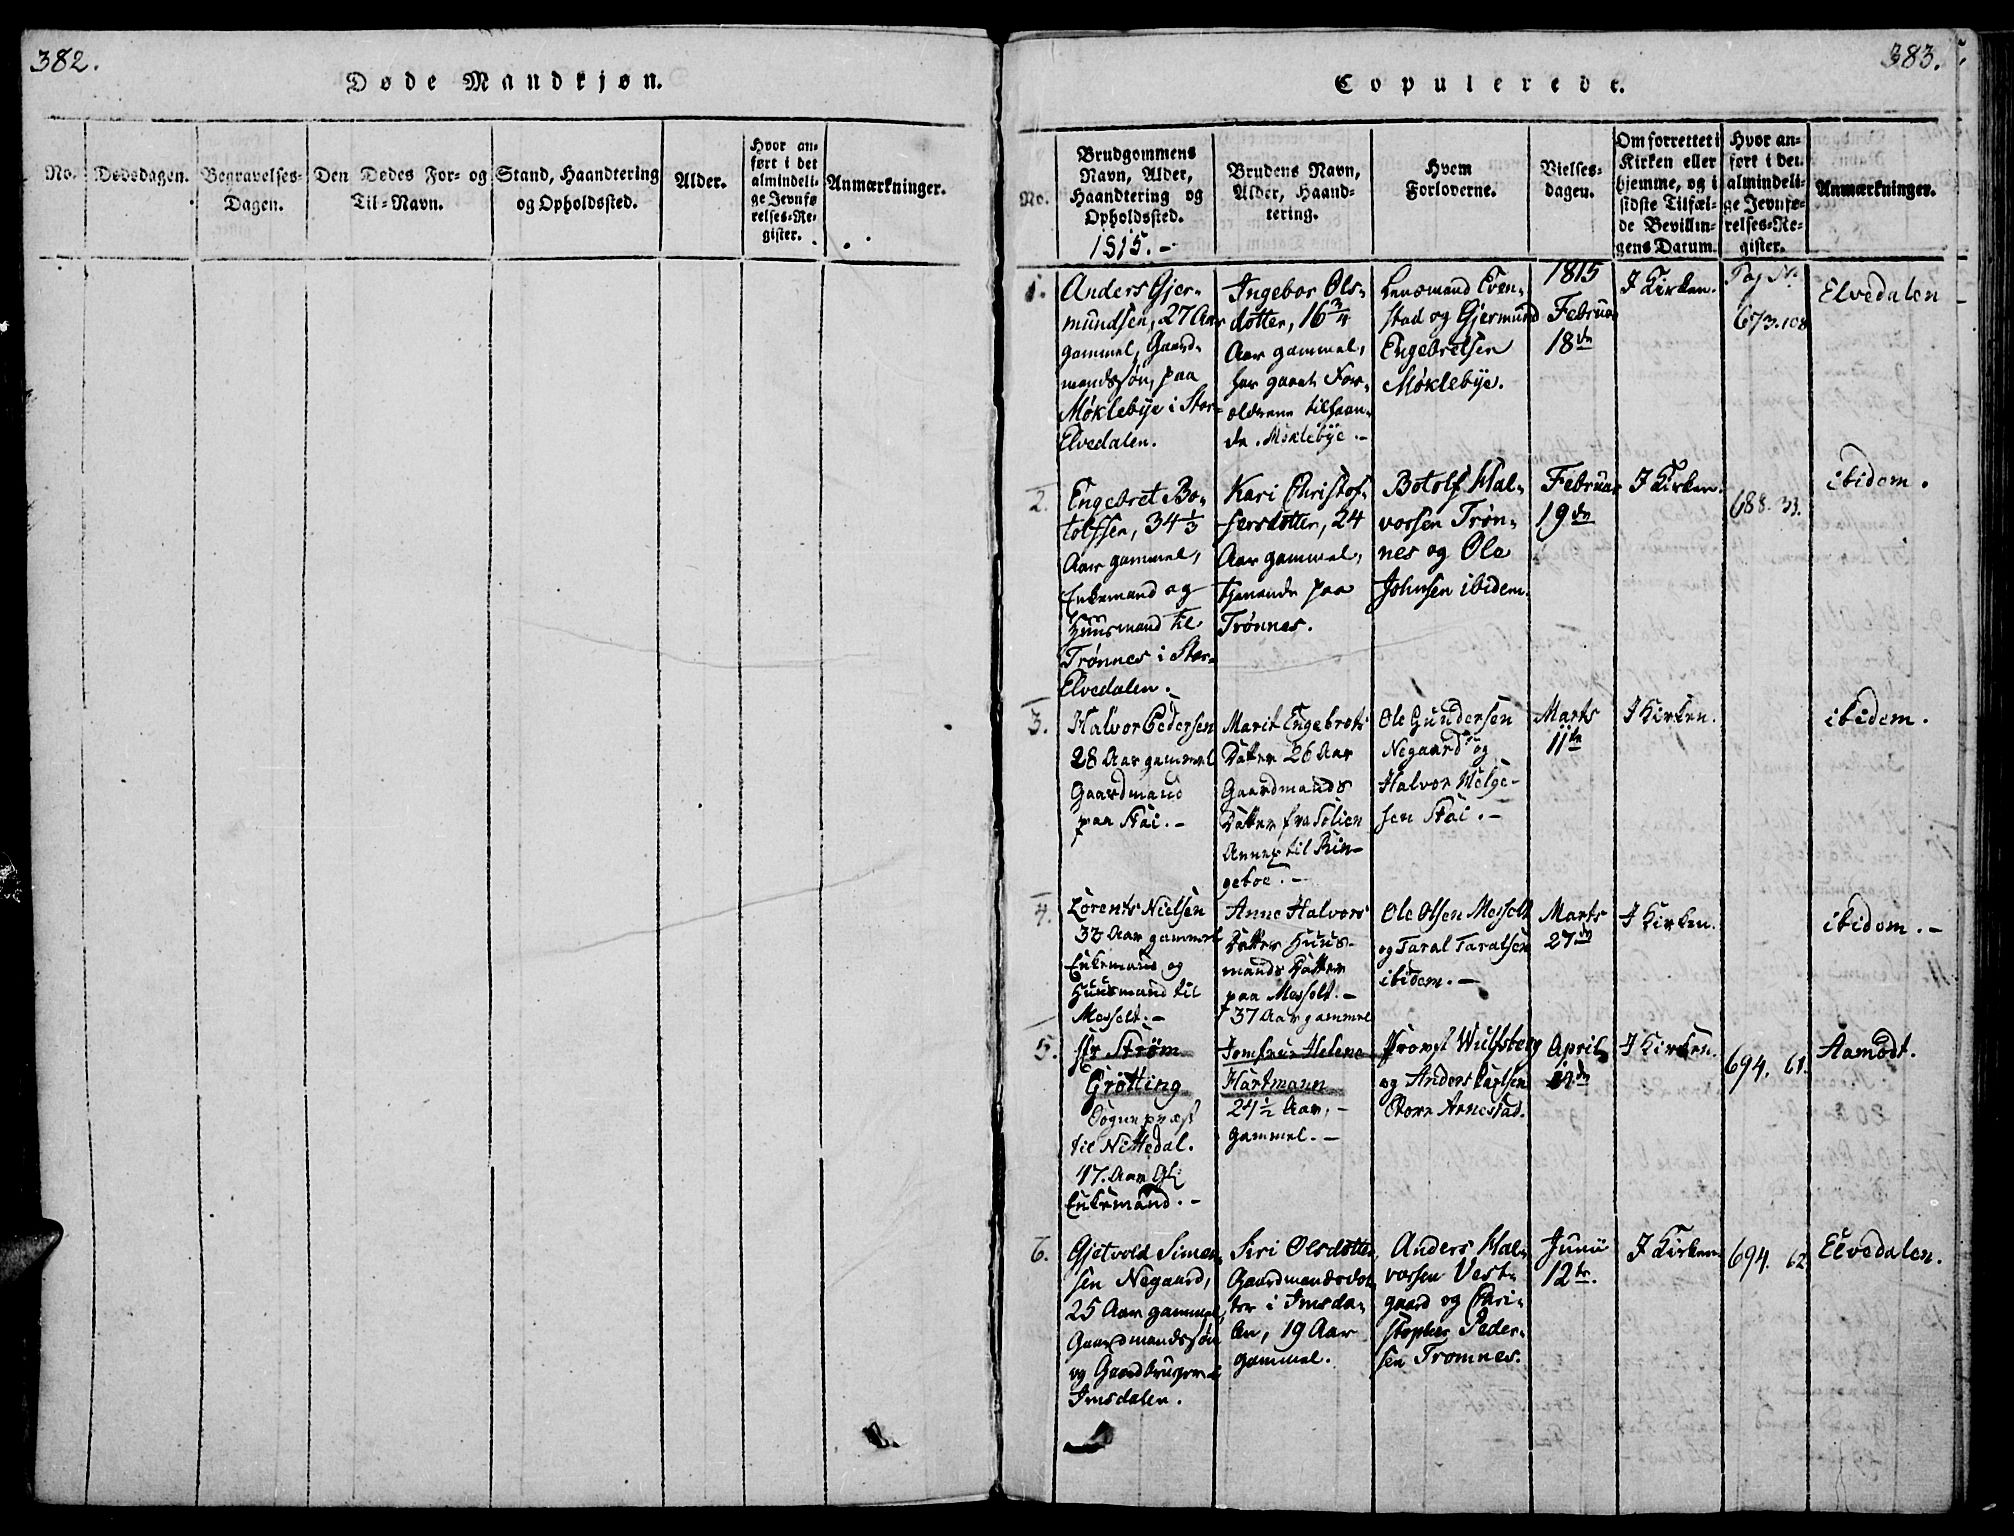 382.
Døde Mandkjøn.
No.
Dødsdagen.
Begravelses-
Dagen.
Den Dødes For- og
Til-Navn.
Stand, Haandtering
og Opholdssted.
Alder.
Hvor an-
ført i det
almindeli-
ge Jevnfø
relses-Re-
gister.
Anmærkninger.
383.
Copulerede.
No.
Brudgommens
Navn, Alder,
Haandtering og
Opholdssted.
1815.-
Brudens Navn,
Alder, Haand-
tering.
Hvem
Forloverne.
Vielses-
dagen.
Om forrettet i
Kirken eller
hjemme, og i
sidste Tilfæl-
de Bevillin-
gens Datum.
Hvor an-
ført i det
almindeli-
ge Jevnfø-
relses-Re-
gister.
Anmærkninger.
1.
Anders Gjer-
mundsen, 27 Aar
gammel, Gaard-
mandssøn, paa
Møklebÿe i Stor-
Elvedalen.
Ingebor Ols-
dotter, 16 3/4
Aar gammel,
har gaaet For-
ældrene tilhaan-
de. Møklebÿe.-
Lensmand Even-
stad og Gjermund
Engebretsen
Møklebÿe.
1815
Februar
18de
I Kirken.
Pag N.
673. 108
Elvedalen
2.
Engebret Bo-
tolfsen, 34 1/3
Aar gammel,
Enkemand og
Huusmand til
Trønnes i Stor-
Elvedalen.
Kari Christof-
fersdotter, 24
Aar gammel,
tjenende paa
Trønnes.
Botolf Hal-
vorsen Trøn-
nes og Ole
Johnsen ibidem.
Februar
19de
I Kirken.
688. 33.
ibidem.
3.
Halvor Pedersen
28 Aar gammel
Gaardmand
paa Stai.-
Marit Engebrets
Datter 26 Aar
Gaardmands
Datter fra Solien
Annex til Rin-
geboe.-
Ole Gundersen
Negaard og
Halvor Helge-
sen Stai.-
Marts
11te
I Kirken.
ibidem.
4.
Lorents Nielsen
Aar gammel
Enkemand og
Huusmand til
Messelt.-
Anne Halvors
Datter Huus-
mands Datter
paa Messelt.-
37 Aar gammel
Ole Olsen Messelt
og Taral Taralsen
ibidem.-
Marts
27de
I Kirken.
ibidem.-
5.
Hr Strøm
Grøtting
Sognepræst
til Nittedal.
47. Aar Gl:
Enkemand.-
Jomfrue Helena
Hartmann
24 1/2 Aar,-
Gammel.-
Provst Wulfsberg
og Anders Carlsen
Store Arnestad.
April
I Kirken.
694. 61.
Aamodt.
6.
Gjetvold Simen-
sen Negaard,
25 Aar gammel,
Gaardmandssøn
og Gaardbruger i
Imsdalen.
Siri Olsdotter
Gaardmandsdot-
ter i Imsda-
len, 19 Aar
gammel.
Anders Hal-
vorsen Vest-
gaard og Chri-
stopher Peder-
sen Tromnes.
Junii
12te.
I Kirken
694. 62
Elvedalen.